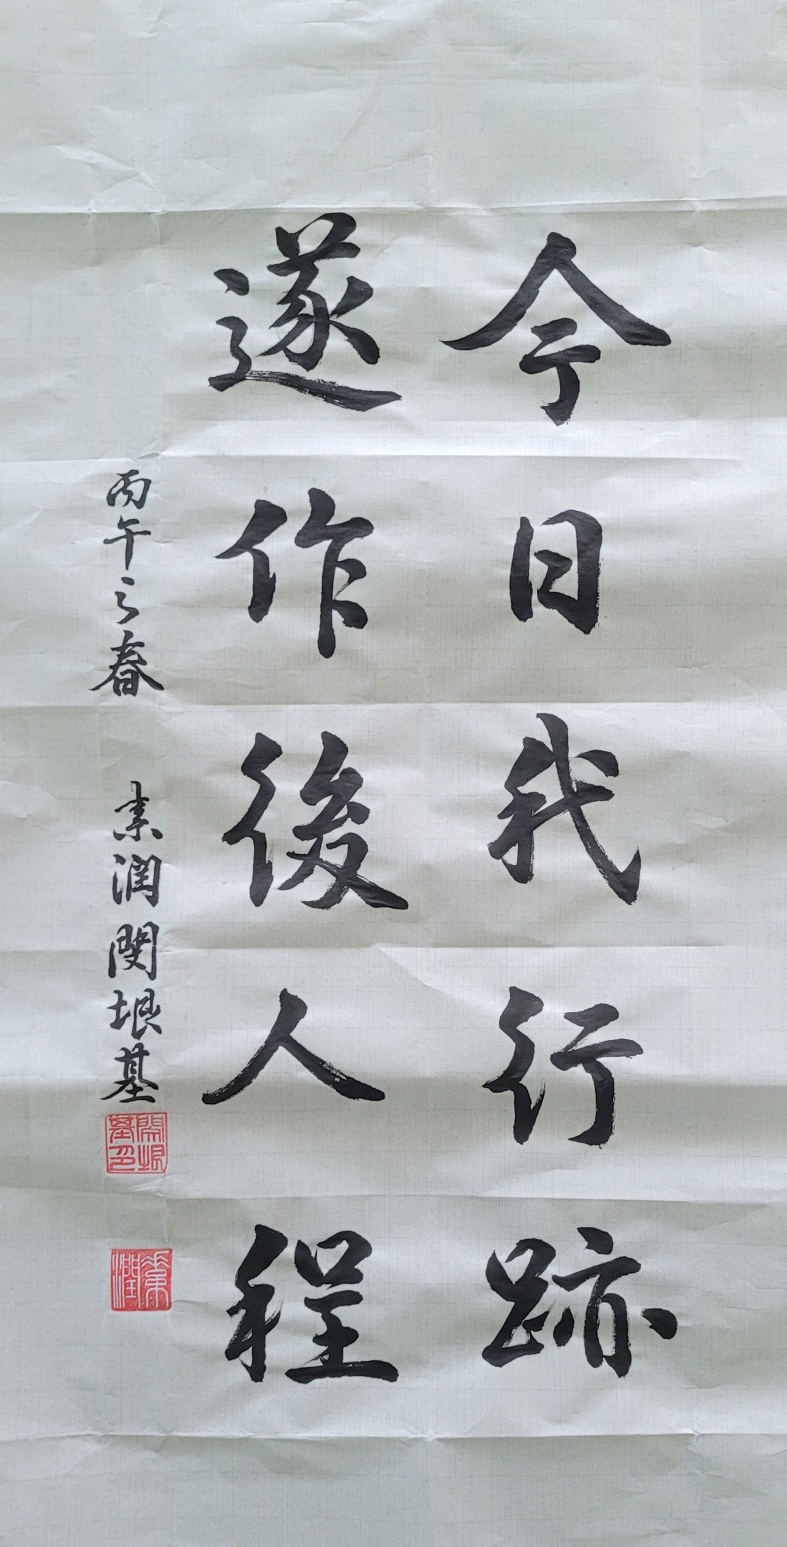 今日我行跡
遂作後人程
丙午之春 素潤閔垠基
閔垠基印
素潤